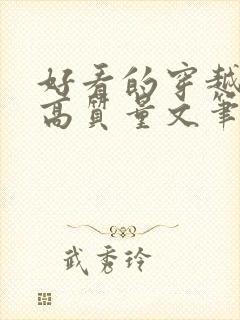 好看的穿越
高质量文笔
武秀玲